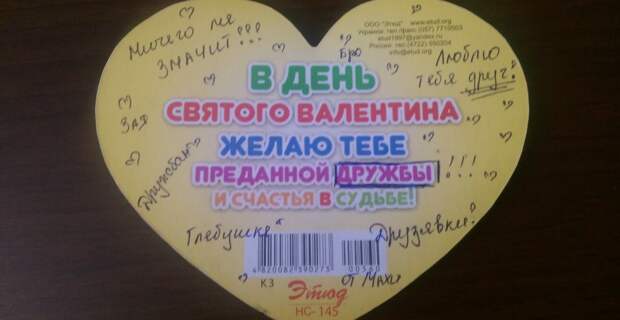 Ничего не
значит!!!
ООО "Этюд" www.etud.org
Украина: тел./факс (057) 7710503
etud1997@yandex.ru
Россия: тел.(4722) 550304
info@etud.org
Бро
Люблю
тебя друг!
В ДЕНЬ
СВЯТОГО ВАЛЕНТИНА
ЖЕЛАЮ ТЕБЕ
ПРЕДАННОЙ ДРУЖБЫ !!!
И СЧАСТЬЯ В СУДЬБЕ!
Зая
Дружбан
Глебушке
Друзявки!
4 820082 390273
00500
К3
От Маха
Этюд
НС-145